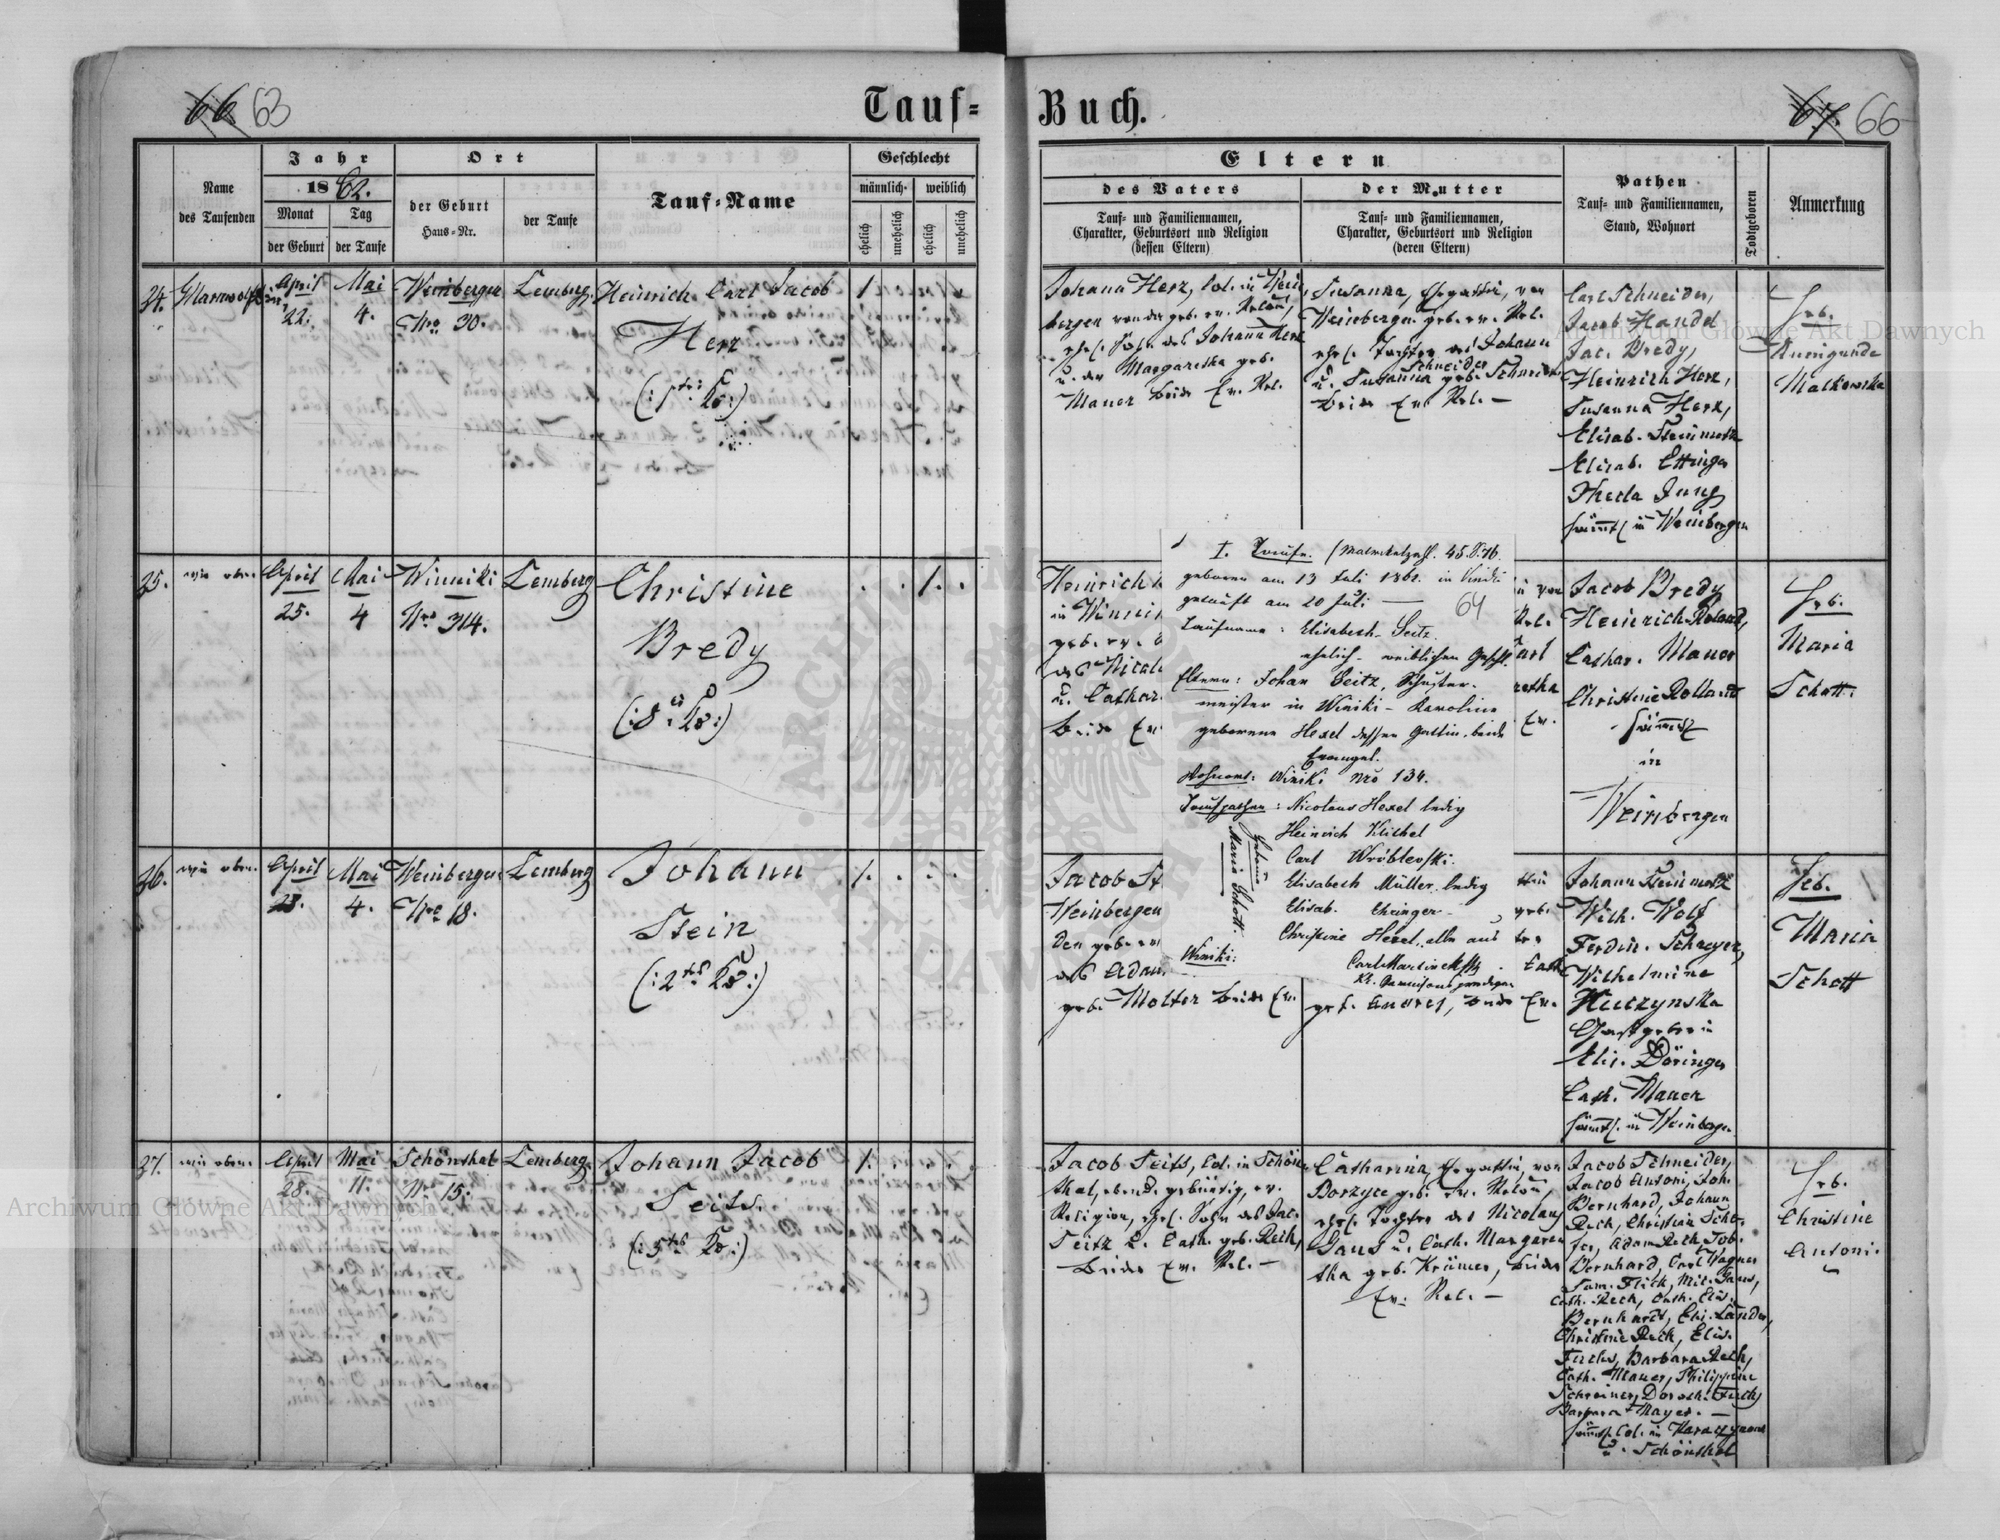 66. 63
Tauf=
Buch.
67. 66
Jahr
Ort
Geschlecht
Name
des Taufenden
1862.
Monat
der Geburt
Tag
der Taufe
der Geburt
Haus=Nr.
der Taufe
Tauf=Name
männlich.
weiblich
ehelich
unehelich
ehelich
unehelich
Eltern
des Vaters
Tauf= und Familiennamen,
Charakter, Geburtsort und Religion
(dessen Eltern)
der Mutter
Tauf= und Familiennamen,
Charakter, Geburtsort und Religion
(deren Eltern)
Pathen
Tauf= und Familiennamen,
Stand, Wohnort
Todtgeboren
Anmerkung
34.
April
22.
Mai
4.
Weinbergen
Nro 30.
Lemberg.
Heinrich Carl Jacob
Herz
1
Johann Herz, Col. in Wein
bergen von da geb. ev. Relon,
ehel. Sohn des Johann Herz
u. der Margaretha geb.
Mauer beide Ev. Rel.
Susanna, Ehegattin, von
Weinbergen geb. ev. Rel.
ehel. Tochter des Johann
Schneider
u. Susanna geb. Schneider
beide Ev. Rel. —
Carl Schneider,
Jacob Handel
Jac. Bredy,
Heinrich Herz,
Susanna Herz,
Elisab. Steinmetz
Elisab. Ettinger
Thecla Jung
sämtl. in Weinbergen
Heb.
Kunigunde
Malkowska
35.
wie oben.
April
25.
Mai
4
Winniki
Nro 314.
Lemberg
Christine
Bredy
1.
Heinrich
in Winni
geb. ev.
des Nicola
u. Cathar
beide Ev
Jacob Bredy
Heinrich Roland,
Cathar. Mauer
Christine Rolland
sämmtl
in
Weinbergen
Heb.
Maria
Schott.
I. Taufe.
geboren am 13 Juli 1862. in Winiki
getauft am 20 Juli —
64
Taufname: Elisabeth Seitz.
ehelich - weiblichen Geschl.
Eltern: Johan Seitz, Schuster-
meister in Winiki - Karolina
geborene Hexel dessen Gattin, beide
Evangel.
Wohnort: Winiki Nro 134.
Taufpathen: Nicolaus Hexel ledig
Heinrich
Carl Wróblewski.
Elisabeth Müller. ledig
Elisab. Eheinger -
Christine Hexel, alle aus
Winiki.
Hebamme
Maria Schott.
Carl Martinek
36.
wie oben.
April
Mai
4.
Weinbergen
Nro 18.
Lemberg
Johann
Stein
1.
Jacob St
Weinbergen
den geb. ev
des Adam
geb. Molter beide Ev.
geb. Andres, beide Ev.
Johann Steinmetz
Wilh. Wolf
Ferdin. Schreyer,
Wilhelmine
Huczynska
Gastgeberin
Elis. Döringer
Cath. Mauer
sämtl. in Weinbergen
Heb.
Maria
Schott
37.
wie oben.
April
28.
Mai
11.
Schönthal
Nro 15.
Lemberg.
Johann Jacob
Seitz.
1.
Jacob Seitz, Col. in Schön
thal, ebend. gebürtig, ev.
Religion, ehel. Sohn des Jac.
Seitz u. Cath. geb. Reich,
beide Ev. Rel. —
Catharina, Ehegattin, von
Dorzyce geb. ev. Relon,
ehel. Tochter des Nicolaus
Gaus u. Cath. Margare
tha geb. Krämer, beide
Ev. Rel. —
Jacob Schneider,
Jacob Antoni, Joh.
Bernhard, Johann
Reck, Christian Schä-
fer, Adam Reck, Job.
Bernhard, Carl Wagner
Sam. Flick, Mic. Gaus,
Cath. Reck, Cath. Elis.
Bernhardt, Eli. Sander,
Christine Reck, Elis.
Fuchs, Barbara Reck,
Cath. Mauer, Philippine
Schreiner, Doroth. Fuchs,
Barbara Mayer. —
u. Schönthal
Heb.
Christine
Antoni.
Archiwum Główne Akt Dawnych
Archiwum Główne Akt Dawnych